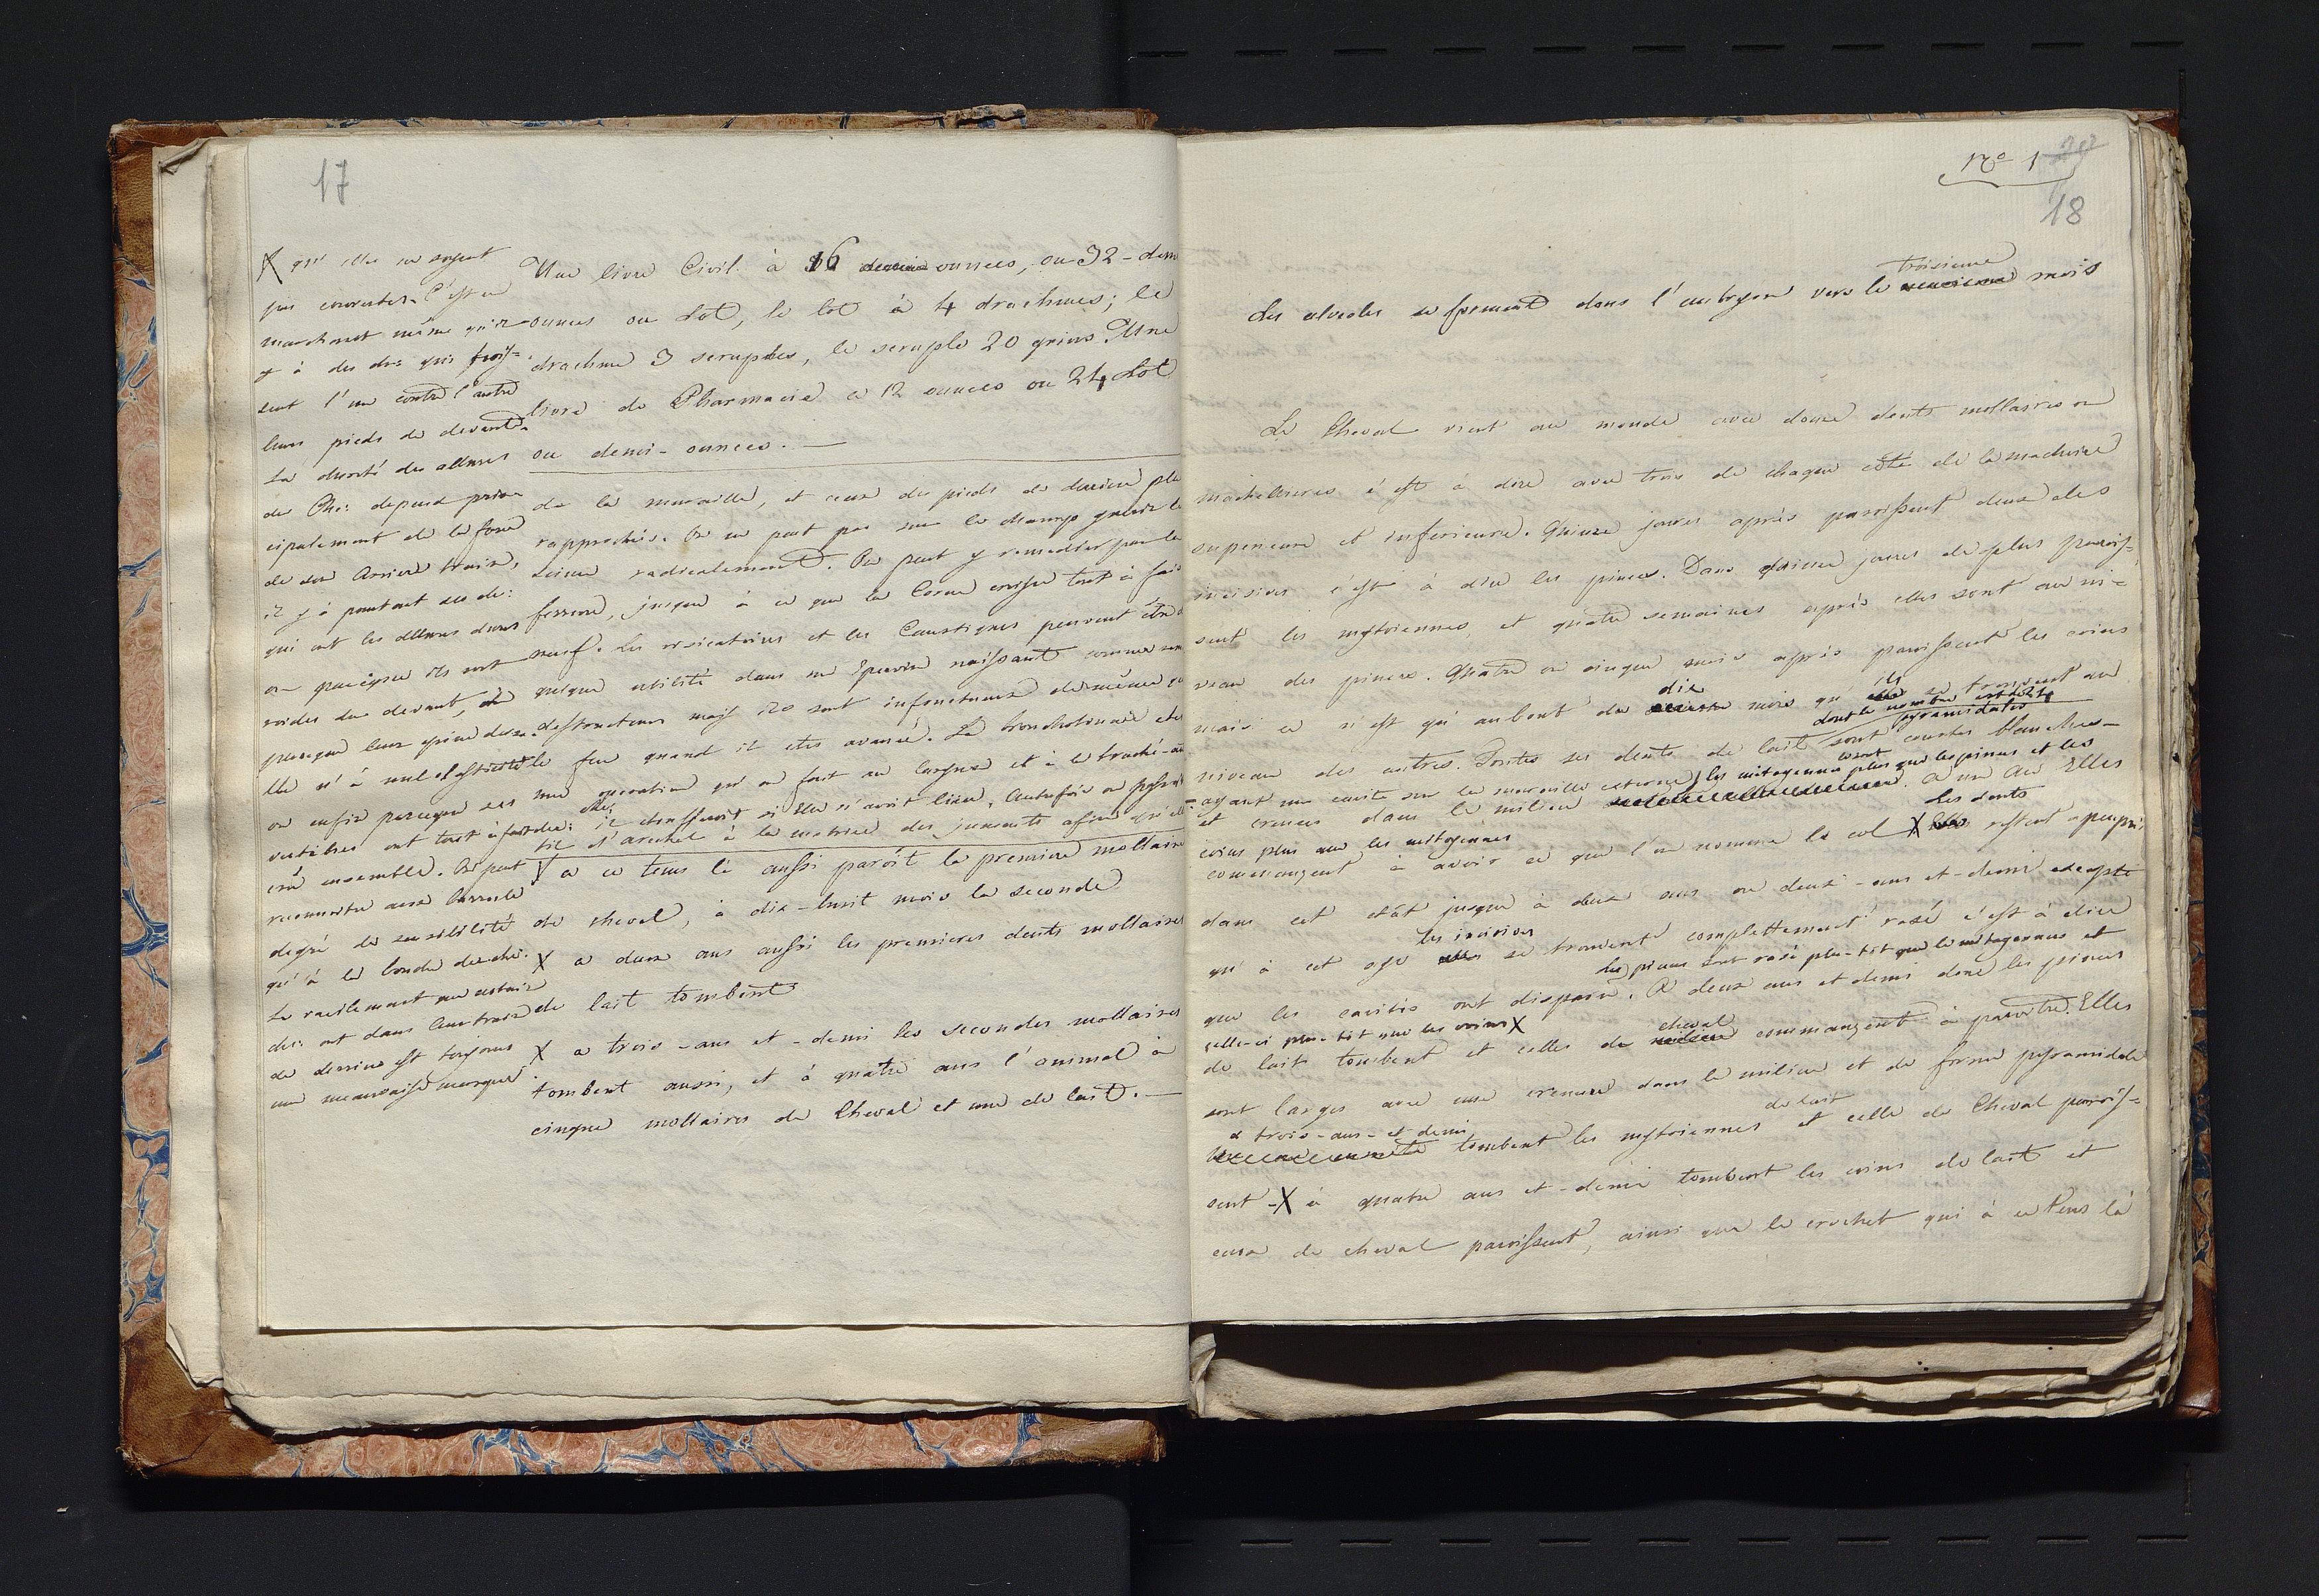 17
X qu'elle ne soyent
pas couvertes. C'est un
marchant même qu'il
y à des che: qui frois=
sent l'un contre l'autre
leurs pieds de devant.
La dureté des allures
des Che: depend prin
cipalement de la force
de son Arriere train,
il y à pourtant des che:
qui ont les allures dures
ou parceque ils sont
roides du devant,
parceque leur epine dorsa
lle n'à nul elasticité
ou enfin parceque ses
vertèbres ont tout à fait
crû ensemble. On peut
reconnoitre aussi
degré de sensibilité
qu'à la bouche du che:
Le
che: ont dans leur train
de derrière est toujours
une mauvaise marque.
Une livre Civil à 16 ounces, ou 32 - demi
ounces ou Lot, le lot à 4 drachmes; le
drachme 3 scruples, le scruple 20 grins. Une
livre de Pharmacie a 12 ounces ou 24 Lot
ou demi - ounces. —
de la muraille, et ceux des pieds de derriere plus
rapprochés. On ne peut pas sur le champ guerir la
seime radicalement. On peut y remedier par la
ferrure, jusque à ce que la Corne croisse tout à fait
neuf. Les vesicatoires et les Caustiques peuvent être
quelque utilité dans un éparvin naissant comme
destructeurs mais ils sont infructueux de même que
le feu quand il est avancé. La bronchotomie est
une operation qu'on fait au larynx et à la traché-
che: étoufferoit si elle n'avoit lieu. Autrefois on
fil d'archal à la matrice des juments afin qu'elle
X a ce tems là aussi paroît la premiere mollaire
de cheval, à dix-huit mois la seconde
X a deux ans aussi les premieres dents mollaires
de lait tombent
X a trois - ans - et - demi les secondes mollaires
tombent aussi, et à quatre ans l'animal à
cinque mollaires de Cheval et une de lait. —
No 1
20
18
troisieme
Les alveoles se forment dans l'embryon vers le mois
Le Cheval vient au monde avec douze dents mollaires ou
machelieres c'est à dire avec trois de chaque côté de la machoire
superieure et inferieure. Quinze jours après paroissent deux des
incisives c'est à dire les pinces. Dans quinze jours de plus parois=
sent les mytoiennes, et quatre semaines après elles sont au ni=
veau des pinces. Quatre ou cinque mois après paroissent les coins
dix ils
mais ce n'est qu'au bout de mois qu' se trouvent au
dont le nombre est de 24
niveau des autres. Toutes ses dents de lait sont courtes blanches
pyramidales
= ayant une cavité sur la muraille externe, les mitoyennes plus que les pinces et les
et creuses dans le milieu. A un an Elles
coins plus que les mitoyennes Les dents
commençent à avoir ce que l'on nomme le col X restent apeupré
dans cet etât jusque à deux ans ou deux - ans et - demi excepté
les incisives
qu'à cet age se trouvent complettement rasé c'est à dire
les pinces sont rasé plus-tôt que le mitoyennes et
que les cavités ont disparu. A deux ans et demi donc les pinces
celle-ci plus-tôt que les coins X cheval
de lait tombent et celles de commençent à paroitre. Elles
sont larges avec une creusure dans le milieu et de forme pyramidale
a trois - ans - et - demi de lait
tombent les mytoiennes et celle de Cheval parois=
sent - X à quatre ans et - demi tombent les coins de lait et
ceux de cheval paroissent, ainsi que le crochet qui à ce tems là